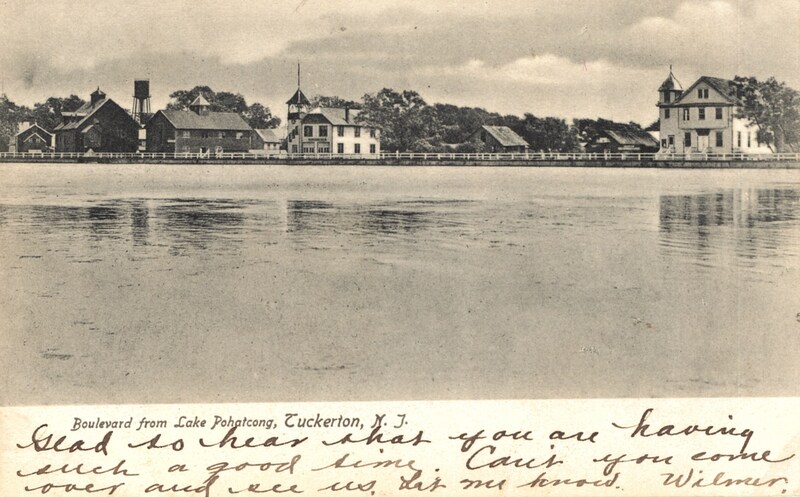 Boulevard from Lake Pohatcong, Tuckerton, N. J.
Glad to hear that you are having
such a good time. Can't you come
over and see us. Let me know. Wilmer.